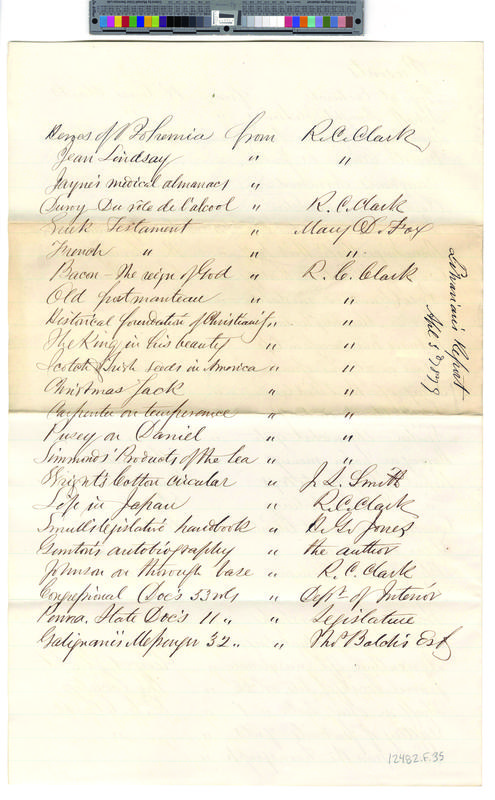 Heroes of Bohemia from R. C. Clark
Jean Lindsay " "
Jayne's medical almanacs "
Du rôle de l'alcool " R. C. Clark
Greek Testament " Mary D. Fox
French " " "
Bacon - the reign of God " R. C. Clark
Old portmanteau " "
Historical foundation of Christianity " "
The King in his beauty " "
Scotch & Irish seeds in America " "
Christmas Jack " "
Carpenter on temperence " "
Pusey on Daniel " "
Simmonds' Products of the Sea " "
Wright's Cotton circular " J. L. Smith
Life in Japan " R. C. Clark
Smull's legislative handbook " H. G. Jones
autobiography " the author
Johnson on thorough base " R. C. Clark
Congressional Doc's 53 vols " Dept. of Interior
Penna. State Doc's 11 " " Legislature
Galignani's Messenger 32 " " Thos Balch's Est
Librarian's Report
Apl 5th 1878
12482.F.35